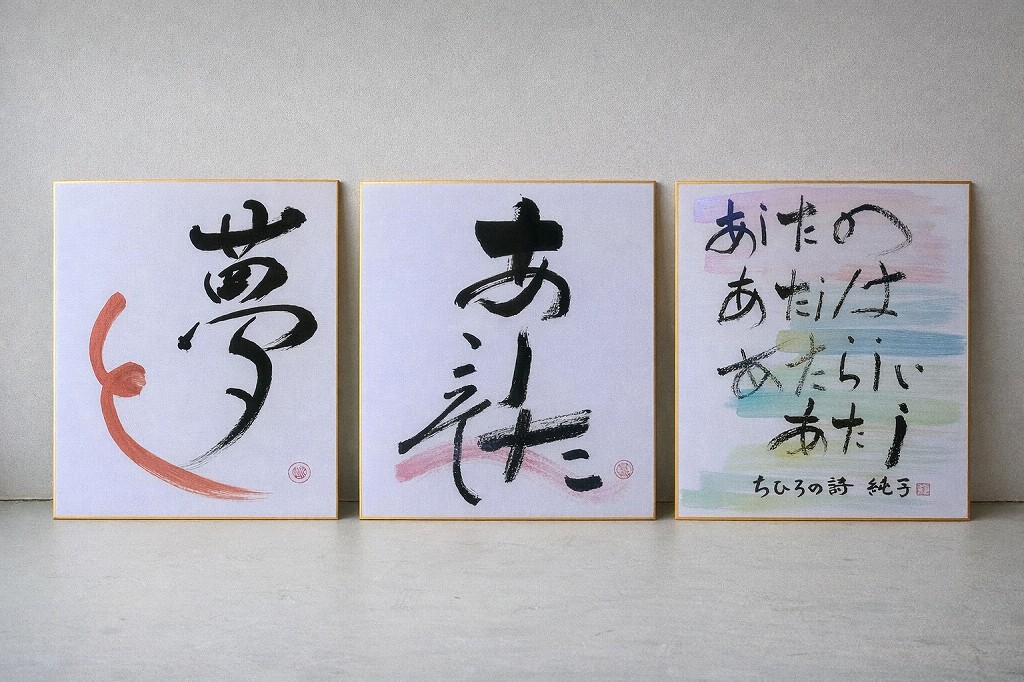 夢
あした
あしたの
あたしは
あたらしい
あたし
ちひろの詩 純子